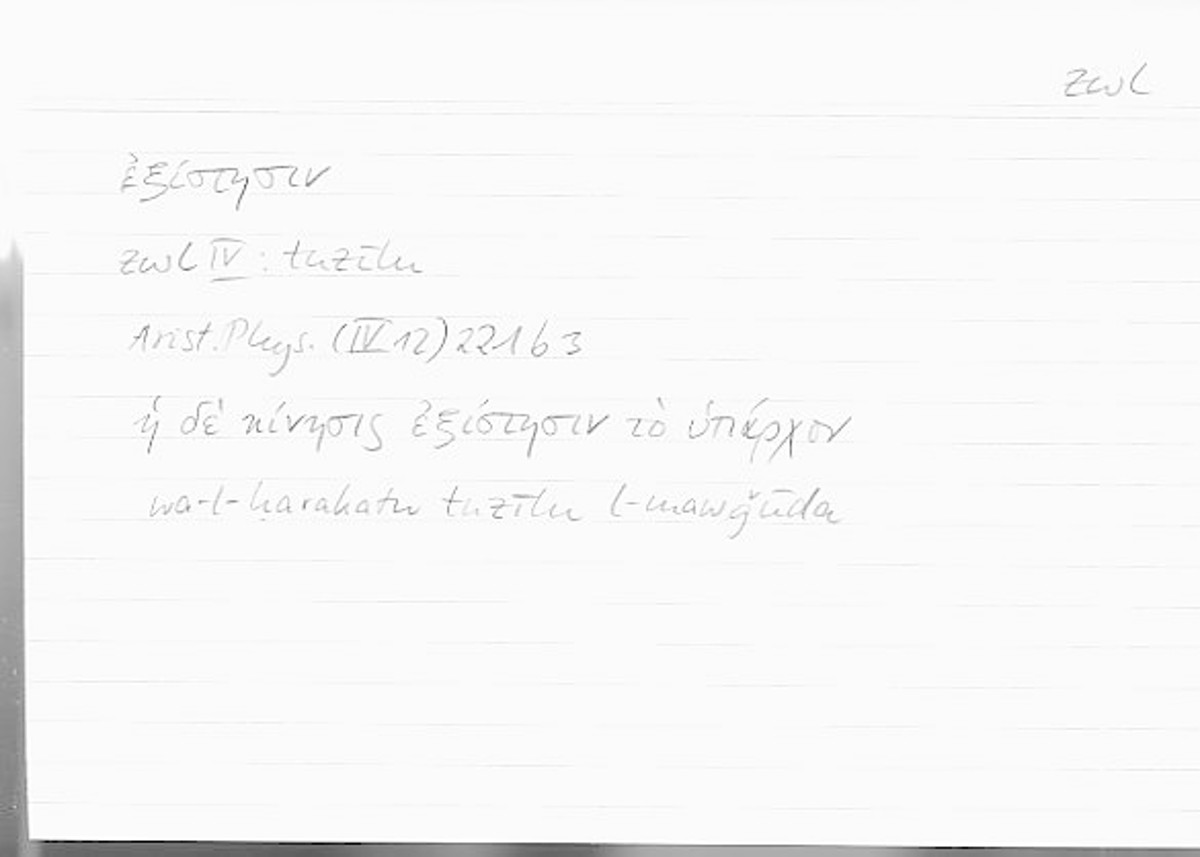 zwl
ἐξίστησιν
zwl IV : tuzīlu
Arist. Phys. (IV 12) 221 b 3
ἡ δὲ κίνησις ἐξίστησιν τὸ ὑπάρχον
wa-l-ḥarakatu tuzīlu l-mawǧūda